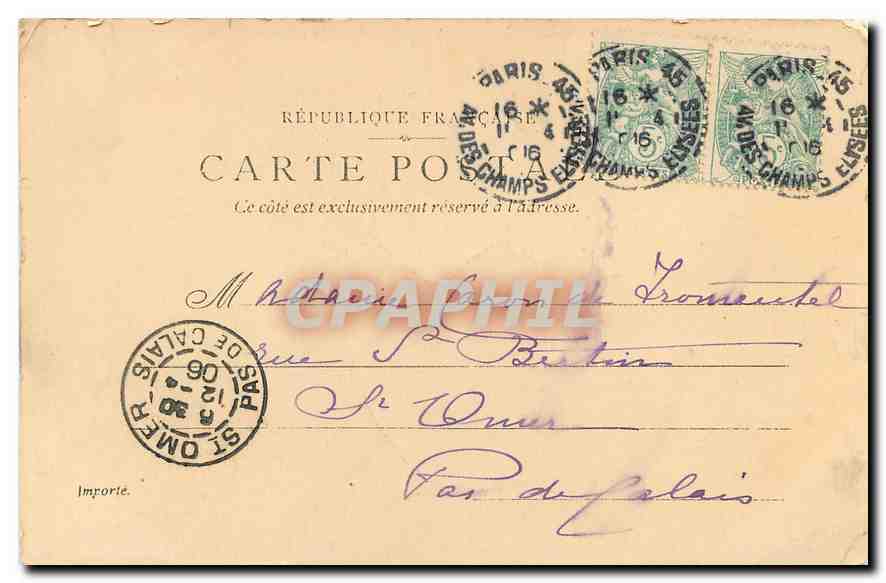 RÉPUBLIQUE FRANÇAISE
CARTE POSTALE
Ce côté est exclusivement réservé à l'adresse.
PARIS 45
AV. DES CHAMPS ELYSEES
16 *
PARIS 45
AV. DES CHAMPS ELYSEES
16 *
5
PARIS 45
AV. DES CHAMPS ELYSEES
16 *
5
CPAPHIL
Madame Caron de Fromentel
rue St Bertin
St Omer
Pas de Calais
ST OMER
PAS DE CALAIS
12
06
Importé.